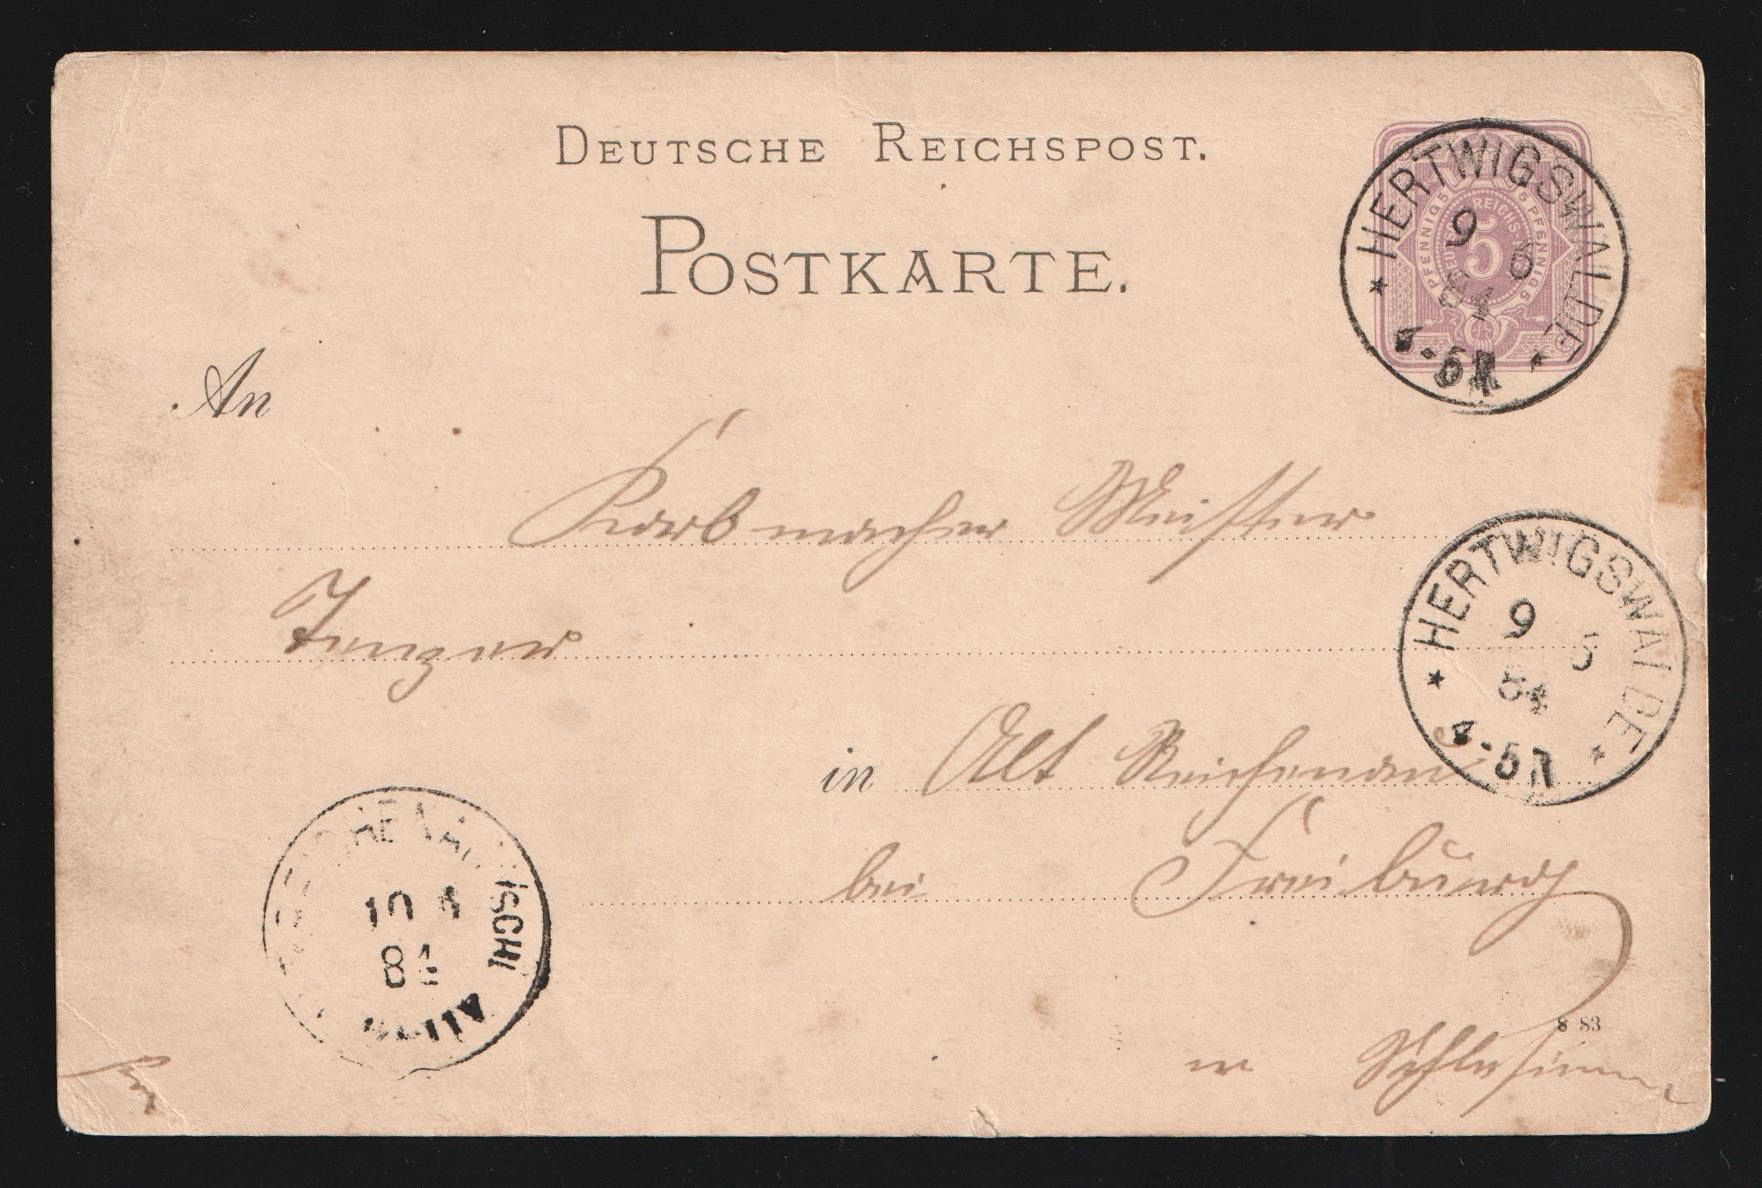 DEUTSCHE REICHSPOST.
POSTKARTE.
HERTWIGSWALDE
9 5
84
4-5N
5 PFENNIG 5 PFENNIG 5
5
An
Korbmacher Meister
HERTWIGSWALDE
9 5
84
4-5N
in Alt Reichenau
bei Freiburg
10 5
84
8 83
in Schlesien